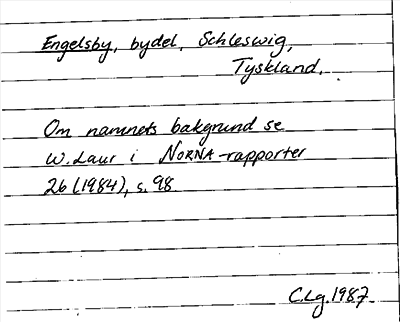 Engelsby, bydel, Schleswig,
Tyskland.
Om namnets bakgrund se
W. Laur i NORNA-rapporter
26 (1984), s. 98
C.Lg. 1987